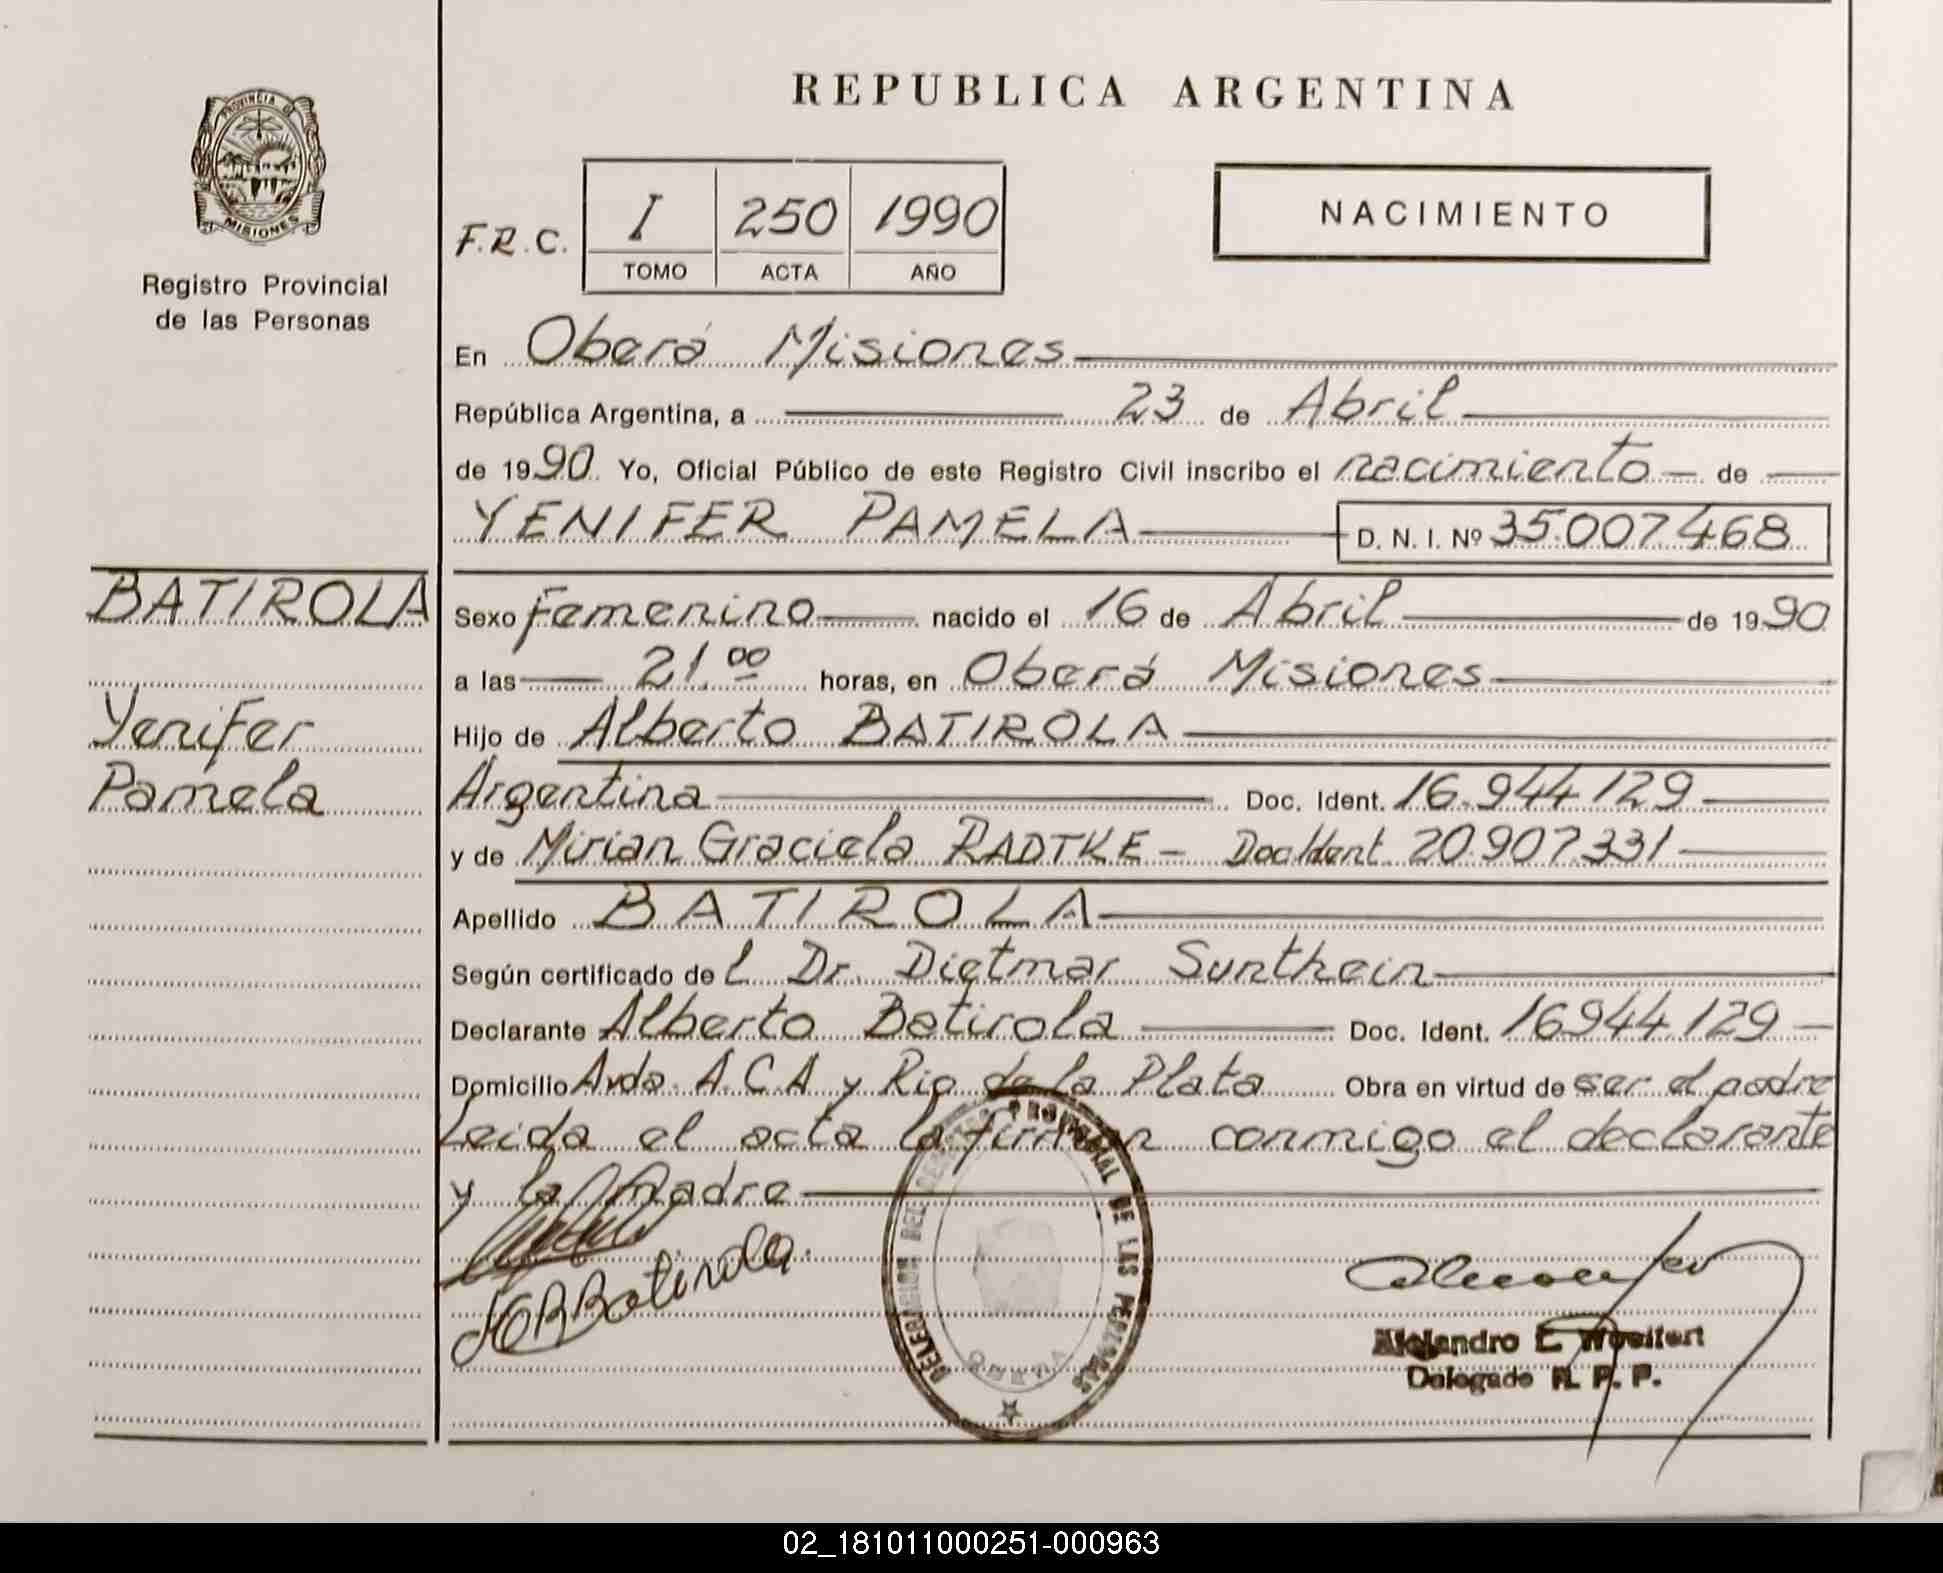 REPUBLICA ARGENTINA
PROVINCIA DE
MISIONES
Registro Provincial
de las Personas
F.R.C.
I 250 1990
TOMO ACTA AÑO
NACIMIENTO
En Oberá Misiones
República Argentina, a 23 de Abril
de 1990. Yo, Oficial Público de este Registro Civil inscribo el nacimiento de
YENIFER PAMELA D. N. I. Nº 35.007.468
BATIROLA
Yenifer
Pamela
Sexo femenino nacido el 16 de Abril de 1990
a las 21.00 horas, en Oberá Misiones
Hijo de Alberto BATIROLA
Argentina Doc. Ident. 16.944.129
y de Mirian Graciela RADTKE - Doc Ident. 20.907.331
Apellido BATIROLA
Según certificado del Dr. Dietmar Sunthein
Declarante Alberto Batirola Doc. Ident. 16944.129
Domicilio Avda. A.C.A y Rio de la Plata Obra en virtud de ser el padre
Leida el acta la firman conmigo el declarante
y la madre
Batirola
PROVINCIAL DE LAS PERSONAS
OBERA
Alejandro E. Woeffert
Delegado R. P. P.
02_181011000251-000963